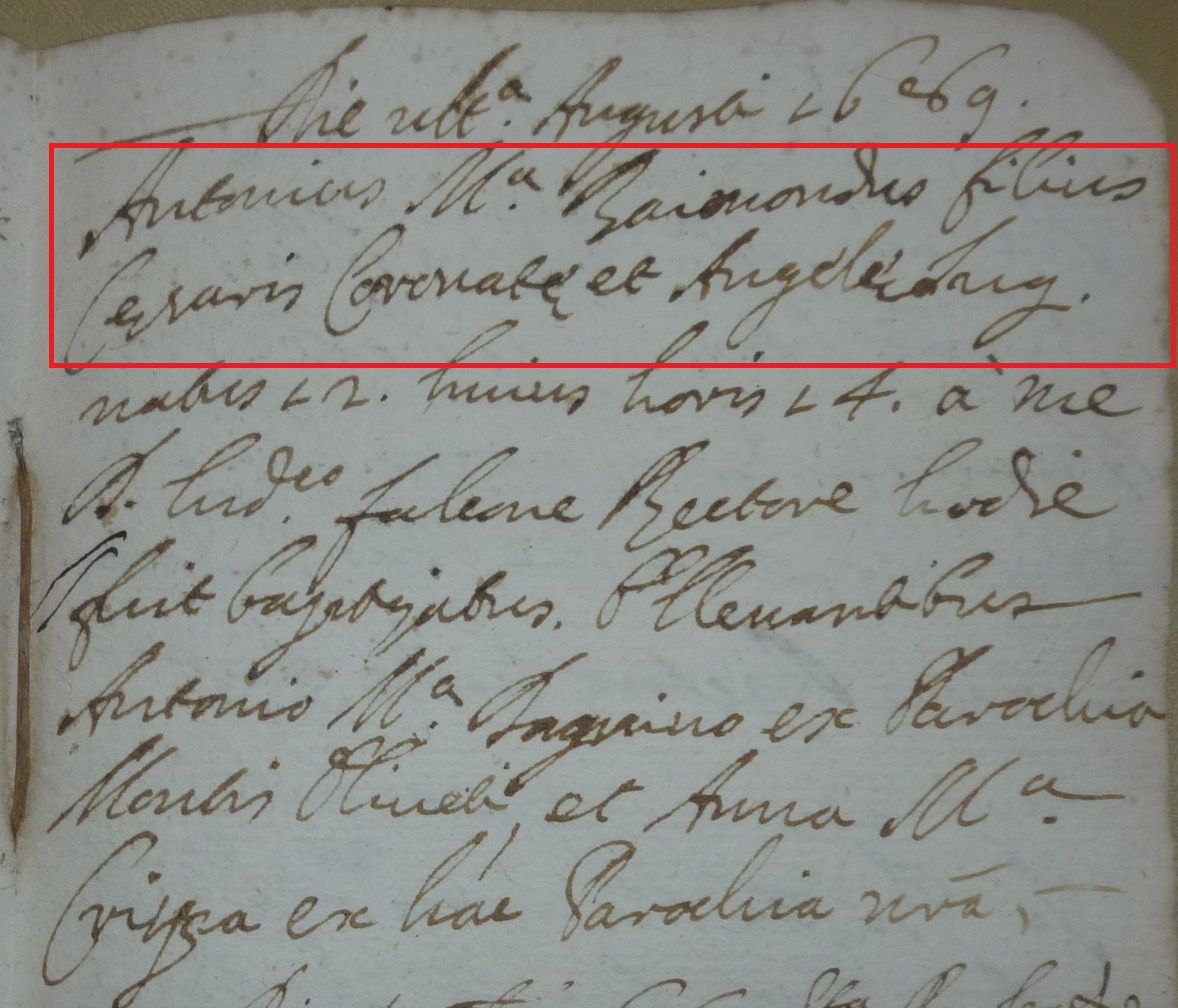 Die ult.ª Augusti 1669.
Antonius M.ª Raimondus filius
Cesaris Coronatę et Angelę Iug.
natus 12. huius horis 14. à me
P. Lud.co falcone Rectore hodie
fuit baptizatus. Ellevantibus
Antonio M.ª ex Parochia
Montis Oliveti, et Anna M.ª
Crispa ex hac Parochia nrã,